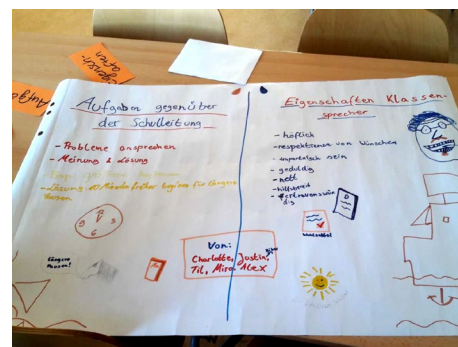 Eigensch-
aften
Aufgaben gegenüber
der Schulleitung
- Probleme ansprechen
- Meinung & Lösung
- Lösung: 10 Minuten früher beginn für längere
Pausen
12
9 3
6
längere
Pausen!
Von:
Charlotte, Justin,
Til, Mira, Alex
Eigenschaften Klassen-
sprecher
- höflich
- respektieren von Wünschen
- unparteiisch sein
- geduldig
- nett
- hilfsbereit
- vertrauenswür
dig